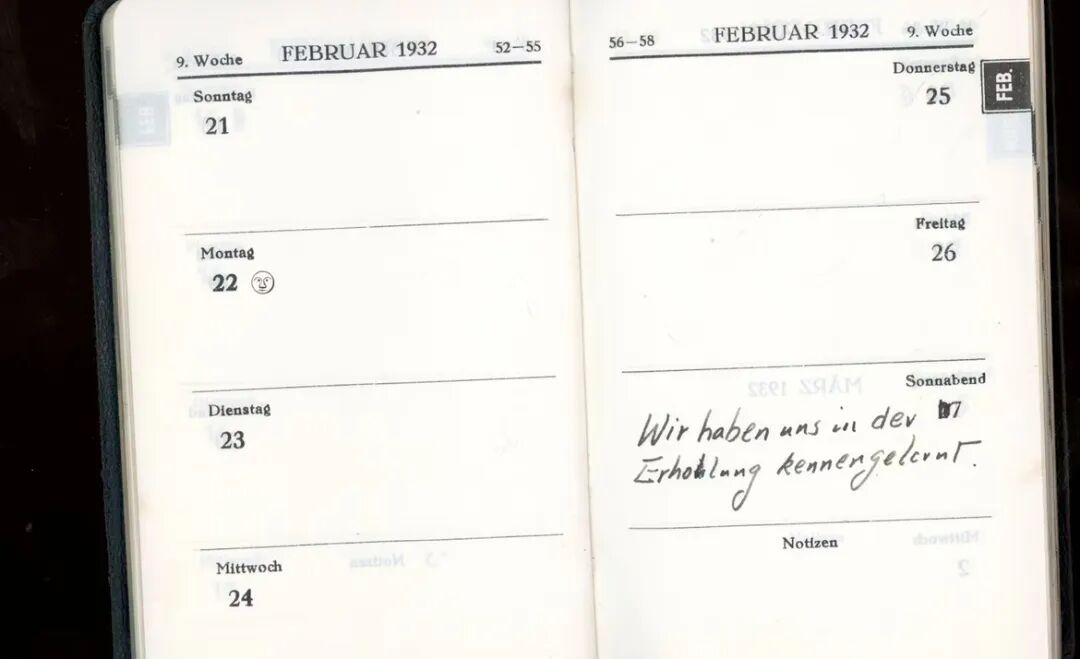 9. Woche FEBRUAR 1932 52—55
Sonntag
21
Montag
22
Dienstag
23
Mittwoch
24
56—58 FEBRUAR 1932 9. Woche
FEB.
Donnerstag
25
Freitag
26
MÄRZ 1932
Sonnabend
Wir haben uns in der
Erholung kennengelernt.
Notizen
Mittwoch
2
Notizen